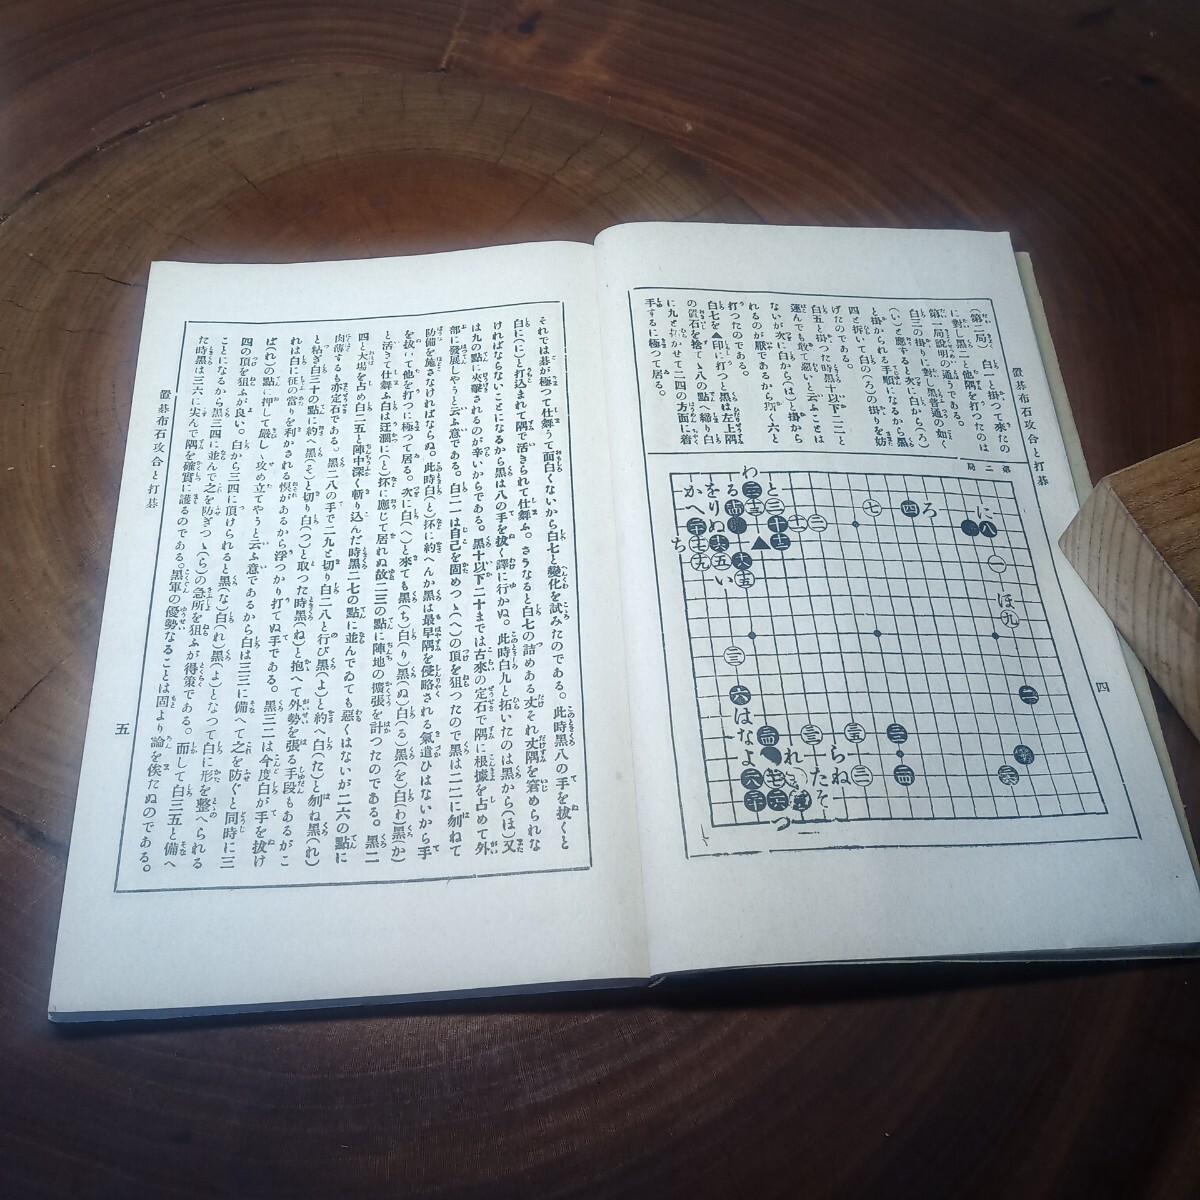 置碁布石攻合と打碁
四
(第二局) 白一と掛つて來たの
に對し黑二と他隅を打つたのは
第一局說明の通うである。
白三の掛りに對し黑普通の如く
(い)と應すると次に白から(ろ)
と掛かられる手順になるから黑
四と拆いて白の(ろ)の掛りを妨
げたのである。
白五と掛つた時黑十以下二二と
運んでも敢て惡いと云ふことは
ないが次に白から(は)と掛から
れるのが厭であるから斯く六と
打つたのである。
白七を▲印に打つと黑は左上隅
の置石を捨てゝ八の點へ締り白
に九と打かせて二四の方面に着
手するに極つて居る。
第二局
それでは碁が極つて仕舞うて面白くないから白七と變化を試みたのである。此時黑八の手を拔くと
白に(に)と打込まれて隅で活きられて仕舞ふ。さうなると白七の詰めある丈それ丈隅を窘められな
ければならないことになるから黑は八の手を拔く譯に行かぬ。此時白九と拓いたのは黑から(ほ)又
は九の點に夾擊されるのが辛いからである。黑十以下二十までは古來の定石で隅に根據を占めて外
部に發展しやうと云ふ意である。白二一は自己を固めつゝ(へ)の頂を狙つたので黑は二二に刎ねて
防備を施さなければならぬ。此時白(と)抔に約へんか黑は最早隅を侵略される氣遣ひはないから手
を拔いて他を打つに極つて居る。次に白(へ)と來ても黑(ち)白(り)黑(ぬ)白(る)黑(を)白(わ)黑(か)
と活きて仕舞ふ白は迂濶に(と)抔に應じて居れぬ故二三の點に陣地の擴張を計つたのである。黑二
四と大場を占め白二五と陣中深く斬り込んだ時黑二七の點に並んでゐても惡くはないが二六の點に
肉薄するも亦定石である。黑二八の手で二九と切り白二八と行び黑(よ)と約へ白(た)と刎ね黑(れ)
と粘ぎ白三十の點に約へ黑(そ)と切り白(つ)と取つた時黑(ね)と抱へて外勢を張る手段もあるがこ
れは白に征の當りを利かされる惧があるから浮つかり打てぬ手である。黑三二は今度白が手を拔け
ば(れ)の點に押して嚴しく攻め立てやうと云ふ意であるから白は三三に備へて之を防ぐと同時に三
四の頂を狙ふが良い。白から三四に頂けられると黑(な)白(れ)黑(よ)となつて白に形を整へられる
ことになるから黑三四に並んで之を防ぎつゝ(ら)の急所を狙ふが得策である。而して白三五と備へ
た時黑は三六に尖んで隅を確實に護るのである。黑軍の優勢なることは固より論を俟たぬのである。
置碁布石攻合と打碁
五